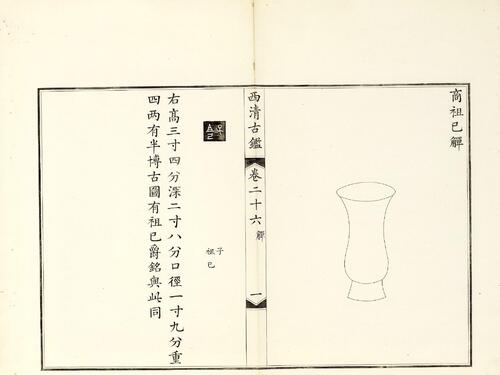 商祖已觶
西清古鑑
卷二十六
觶
一
子
祖已
右高三寸四分深二寸八分口徑一寸九分重
四两有半博古圖有祖已爵銘與此同